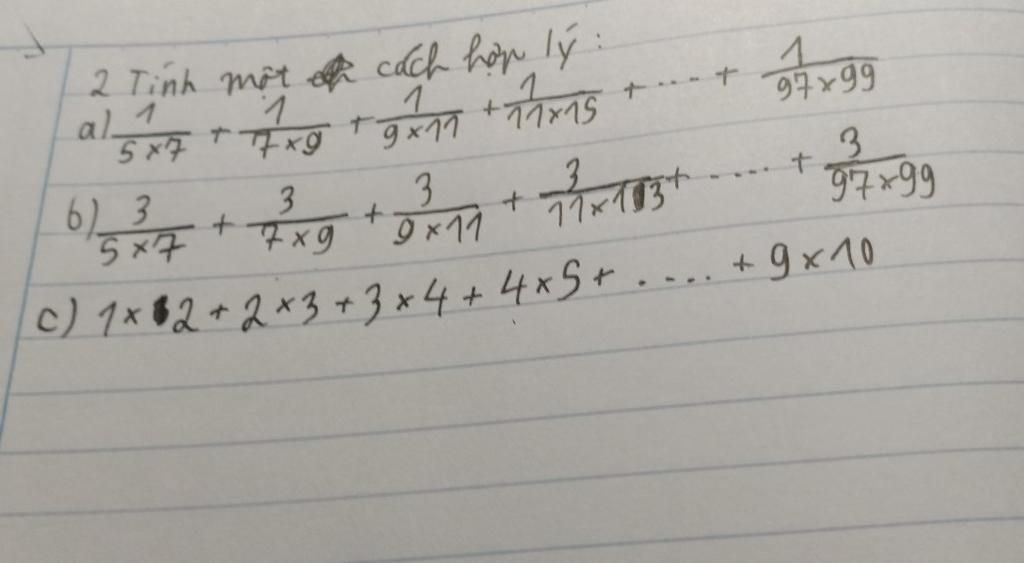 2 Tính một cách hợp lý:
a) 1/5×7 + 1/7×9 + 1/9×11 + 1/11×15 + .... + 1/97×99
b) 3/5×7 + 3/7×9 + 3/9×11 + 3/11×13 + ..... + 3/97×99
c) 1×2 + 2×3 + 3×4 + 4×5 + ..... + 9×10